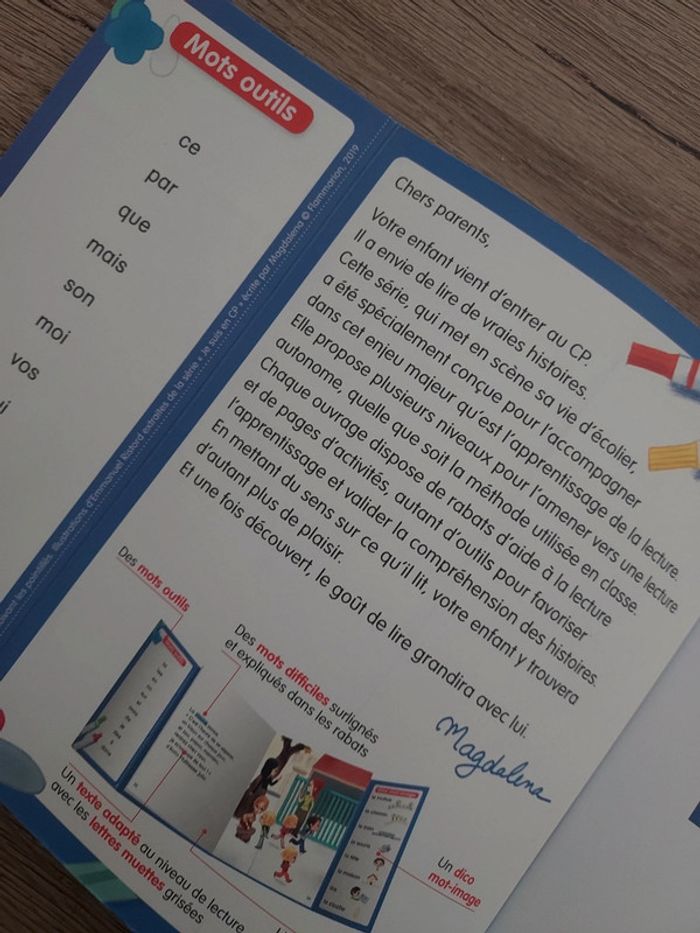 Mots outils
ce
par
que
mais
son
moi
vos
illustrations d'Emmanuel Ristord extraites de la série « Je suis en CP » écrite par Magdalena © Flammarion, 2019
Chers parents,
Votre enfant vient d'entrer au CP.
Il a envie de lire de vraies histoires.
Cette série, qui met en scène sa vie d'écolier,
a été spécialement conçue pour l'accompagner
dans cet enjeu majeur qu'est l'apprentissage de la lecture.
Elle propose plusieurs niveaux pour l'amener vers une lecture
autonome, quelle que soit la méthode utilisée en classe.
Chaque ouvrage dispose de rabats d'aide à la lecture
et de pages d'activités, autant d'outils pour favoriser
l'apprentissage et valider la compréhension des histoires.
En mettant du sens sur ce qu'il lit, votre enfant y trouvera
d'autant plus de plaisir.
Et une fois découvert, le goût de lire grandira avec lui.
Magdalena
Des mots outils
Des mots difficiles surlignés
et expliqués dans les rabats
Un texte adapté au niveau de lecture
avec les lettres muettes grisées
Un dico
mot-image